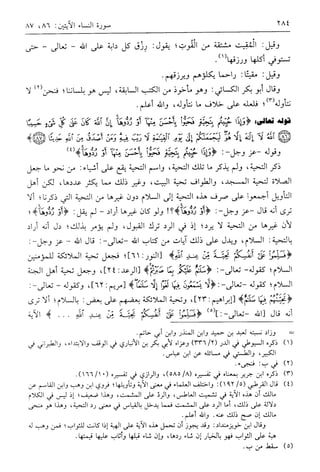 ٢٨٤
صورة النساء الآيتين: ٨٦، ٨٧
وقيل: المُقِيت مشتقة من القُوت؛ يقول: رزق كل دابة على الله - تعالى - حتى
تستوفي أكلها ورزقها(١).
وقيل: مقيتًا: راحما يكلؤهم ويرزقهم.
وقال أبو بكر الكسائي: وهو مأخوذ من الكتب السابقة، ليس هو بلساننا؛ فنحن(٢) لا
نتأوله(٣)؛ فلعله على خلاف ما نتأوله، والله أعلم.
قوله تعالى: ﴿وَإِذَا حُيِّيتُم بِتَحِيَّةٍ فَحَيُّوا بِأَحْسَنَ مِنْهَا أَوْ رُدُّوهَا إِنَّ اللَّهَ كَانَ عَلَى كُلِّ شَيْءٍ حَسِيبًا
اللَّهُ لَا إِلَهَ إِلَّا هُوَ لَيَجْمَعَنَّكُمْ إِلَى يَوْمِ الْقِيَامَةِ لَا رَيْبَ فِيهِ وَمَنْ أَصْدَقُ مِنَ اللَّهِ حَدِيثًا﴾
وقوله - عز وجل -: ﴿وَإِذَا حُيِّيتُم بِتَحِيَّةٍ فَحَيُّوا بِأَحْسَنَ مِنْهَا أَوْ رُدُّوهَا﴾(٤)
ذكر التحية، ولم يذكر ما تلك التحية، واسم التحية يقع على أشياء: من نحو ما جعل
الصلاة لتحية المسجد، والطواف تحية البيت، وغير ذلك مما يكثر عددها، لكن أهل
التأويل أجمعوا على صرف هذه التحية إلى السلام دون غيرها من التحية التي ذكرنا؛ ألا
ترى أنه قال - عز وجل -: ﴿أَوْ رُدُّوهَا﴾؟! ولو كان غيرها أراد - لم يقل: ﴿أَوْ رُدُّوهَا﴾،
لأن غيرها من التحية لا يرد؛ إذ في الرد ترك القبول، ولم يؤمر بذلك؛ دل أنه أراد
بالتحية: السلام، ويدل على ذلك آيات من كتاب الله - تعالى -: قال الله - عز وجل -:
﴿فَسَلِّمُوا عَلَى أَنفُسِكُمْ تَحِيَّةً مِّنْ عِندِ اللَّهِ﴾ [النور: ٦١]؛ فجعل تحية الملائكة للمؤمنين
السلام؛ كقوله - تعالى -: ﴿سَلَامٌ عَلَيْكُم بِمَا صَبَرْتُمْ﴾ [الرعد: ٢٤]، وجعل تحية أهل الجنة
السلام؛ كقوله - تعالى -: ﴿لَّا يَسْمَعُونَ فِيهَا لَغْوًا إِلَّا سَلَامًا﴾ [مريم: ٦٢]، وكقوله - تعالى -:
﴿تَحِيَّتُهُمْ فِيهَا سَلَامٌ﴾ [إبراهيم: ٢٣]، وتحية الملائكة بعضهم على بعض: بالسلام؛ ألا ترى
أنه قال [الله - تعالى -:](٥) ﴿فَسَلِّمُوا عَلَى أَنفُسِكُمْ تَحِيَّةً مِّنْ عِندِ اللَّهِ ...﴾ الآية
= وزاد نسبته لعبد بن حميد وابن المنذر وابن أبي حاتم.
(١) ذكره السيوطي في الدر (٢/٣٣٦) وعزاه لأبي بكر بن الأنباري في الوقف والابتداء، والطبراني في
الكبير، والطستي في مسائله عن ابن عباس.
(٢) في ب: فنحوه.
(٣) ذكره ابن جرير بمعناه في تفسيره (٨/٥٨٥)، والرازي في تفسيره (١٠/١٦٦).
(٤) قال القرطبي (٥/١٩٢): واختلف العلماء في معنى الآية وتأويلها؛ فروى ابن وهب وابن القاسم عن
مالك أن هذه الآية في تشميت العاطس، والرد على المشمت، وهذا ضعيف؛ إذ ليس في الكلام
دلالة على ذلك، أما الرد على المشمت فمما يدخل بالقياس في معنى رد التحية، وهذا هو منحى
مالك إن صح ذلك عنه. والله أعلم.
وقال ابن خويزمنداد: وقد يجوز أن تحمل هذه الآية على الهبة إذا كانت للثواب؛ فمن وهب له
هبة على الثواب فهو بالخيار إن شاء ردها، وإن شاء قبلها وأثاب عليها قيمتها.
(٥) سقط من ب.